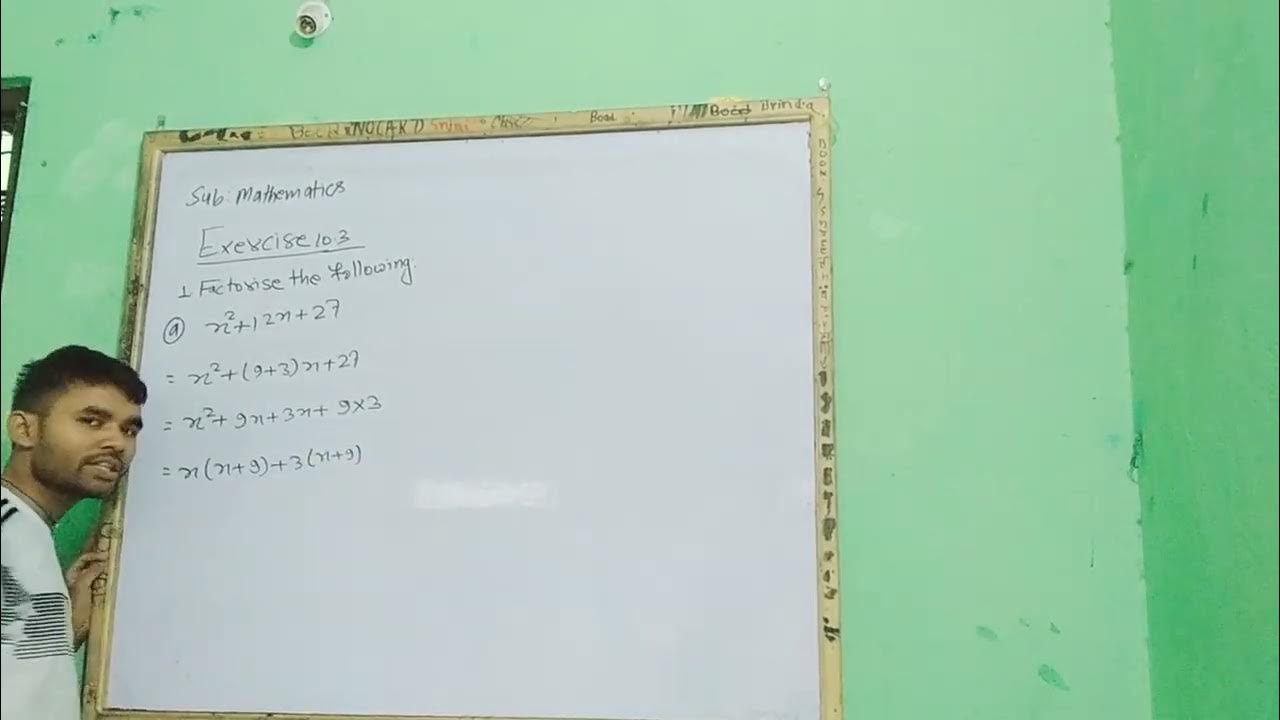 Brinda
Sub: Mathematics
Exercise 10.3
1. Factorise the following.
(a) x²+12x+27
= x²+(9+3)x+27
= x²+9x+3x+9×3
= x(x+9)+3(x+9)